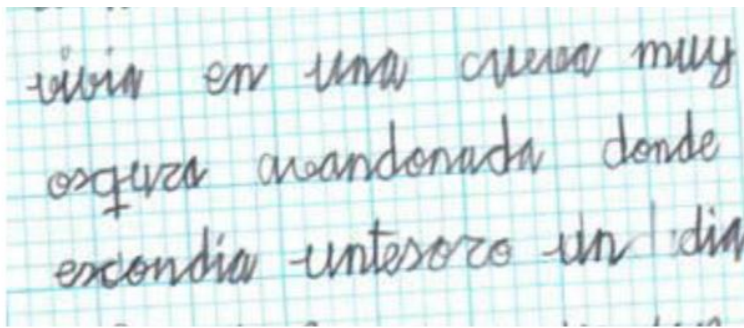 vivia en una cueva muy
osqura avandonada donde
escondia untesoro un dia